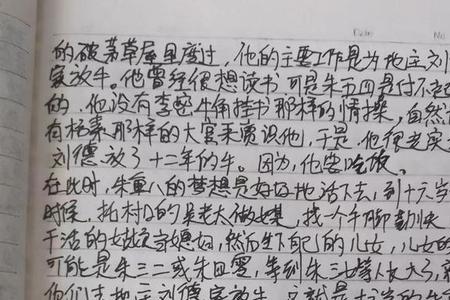 Date No
的破茅草屋里度过,他的主要工作是为地主刘
家放牛。他曾经很想读书 可是朱五四是付不起
的,他没有李密牛角挂书那样的情操,自然
有杨素那样的大官来赏识他,于是,他很老实
刘德放了十二年的牛。因为,他要吃饭。
在此时,朱重八的梦想是好好地活下去,到十六岁
时候,托村口的吴老大做媒,找一个手脚勤快
干活的姑娘当媳妇,然后生下自己的儿女,儿女的
可能是朱三二或朱四零,等到朱三二等人大了,
他们去地主刘德家放牛